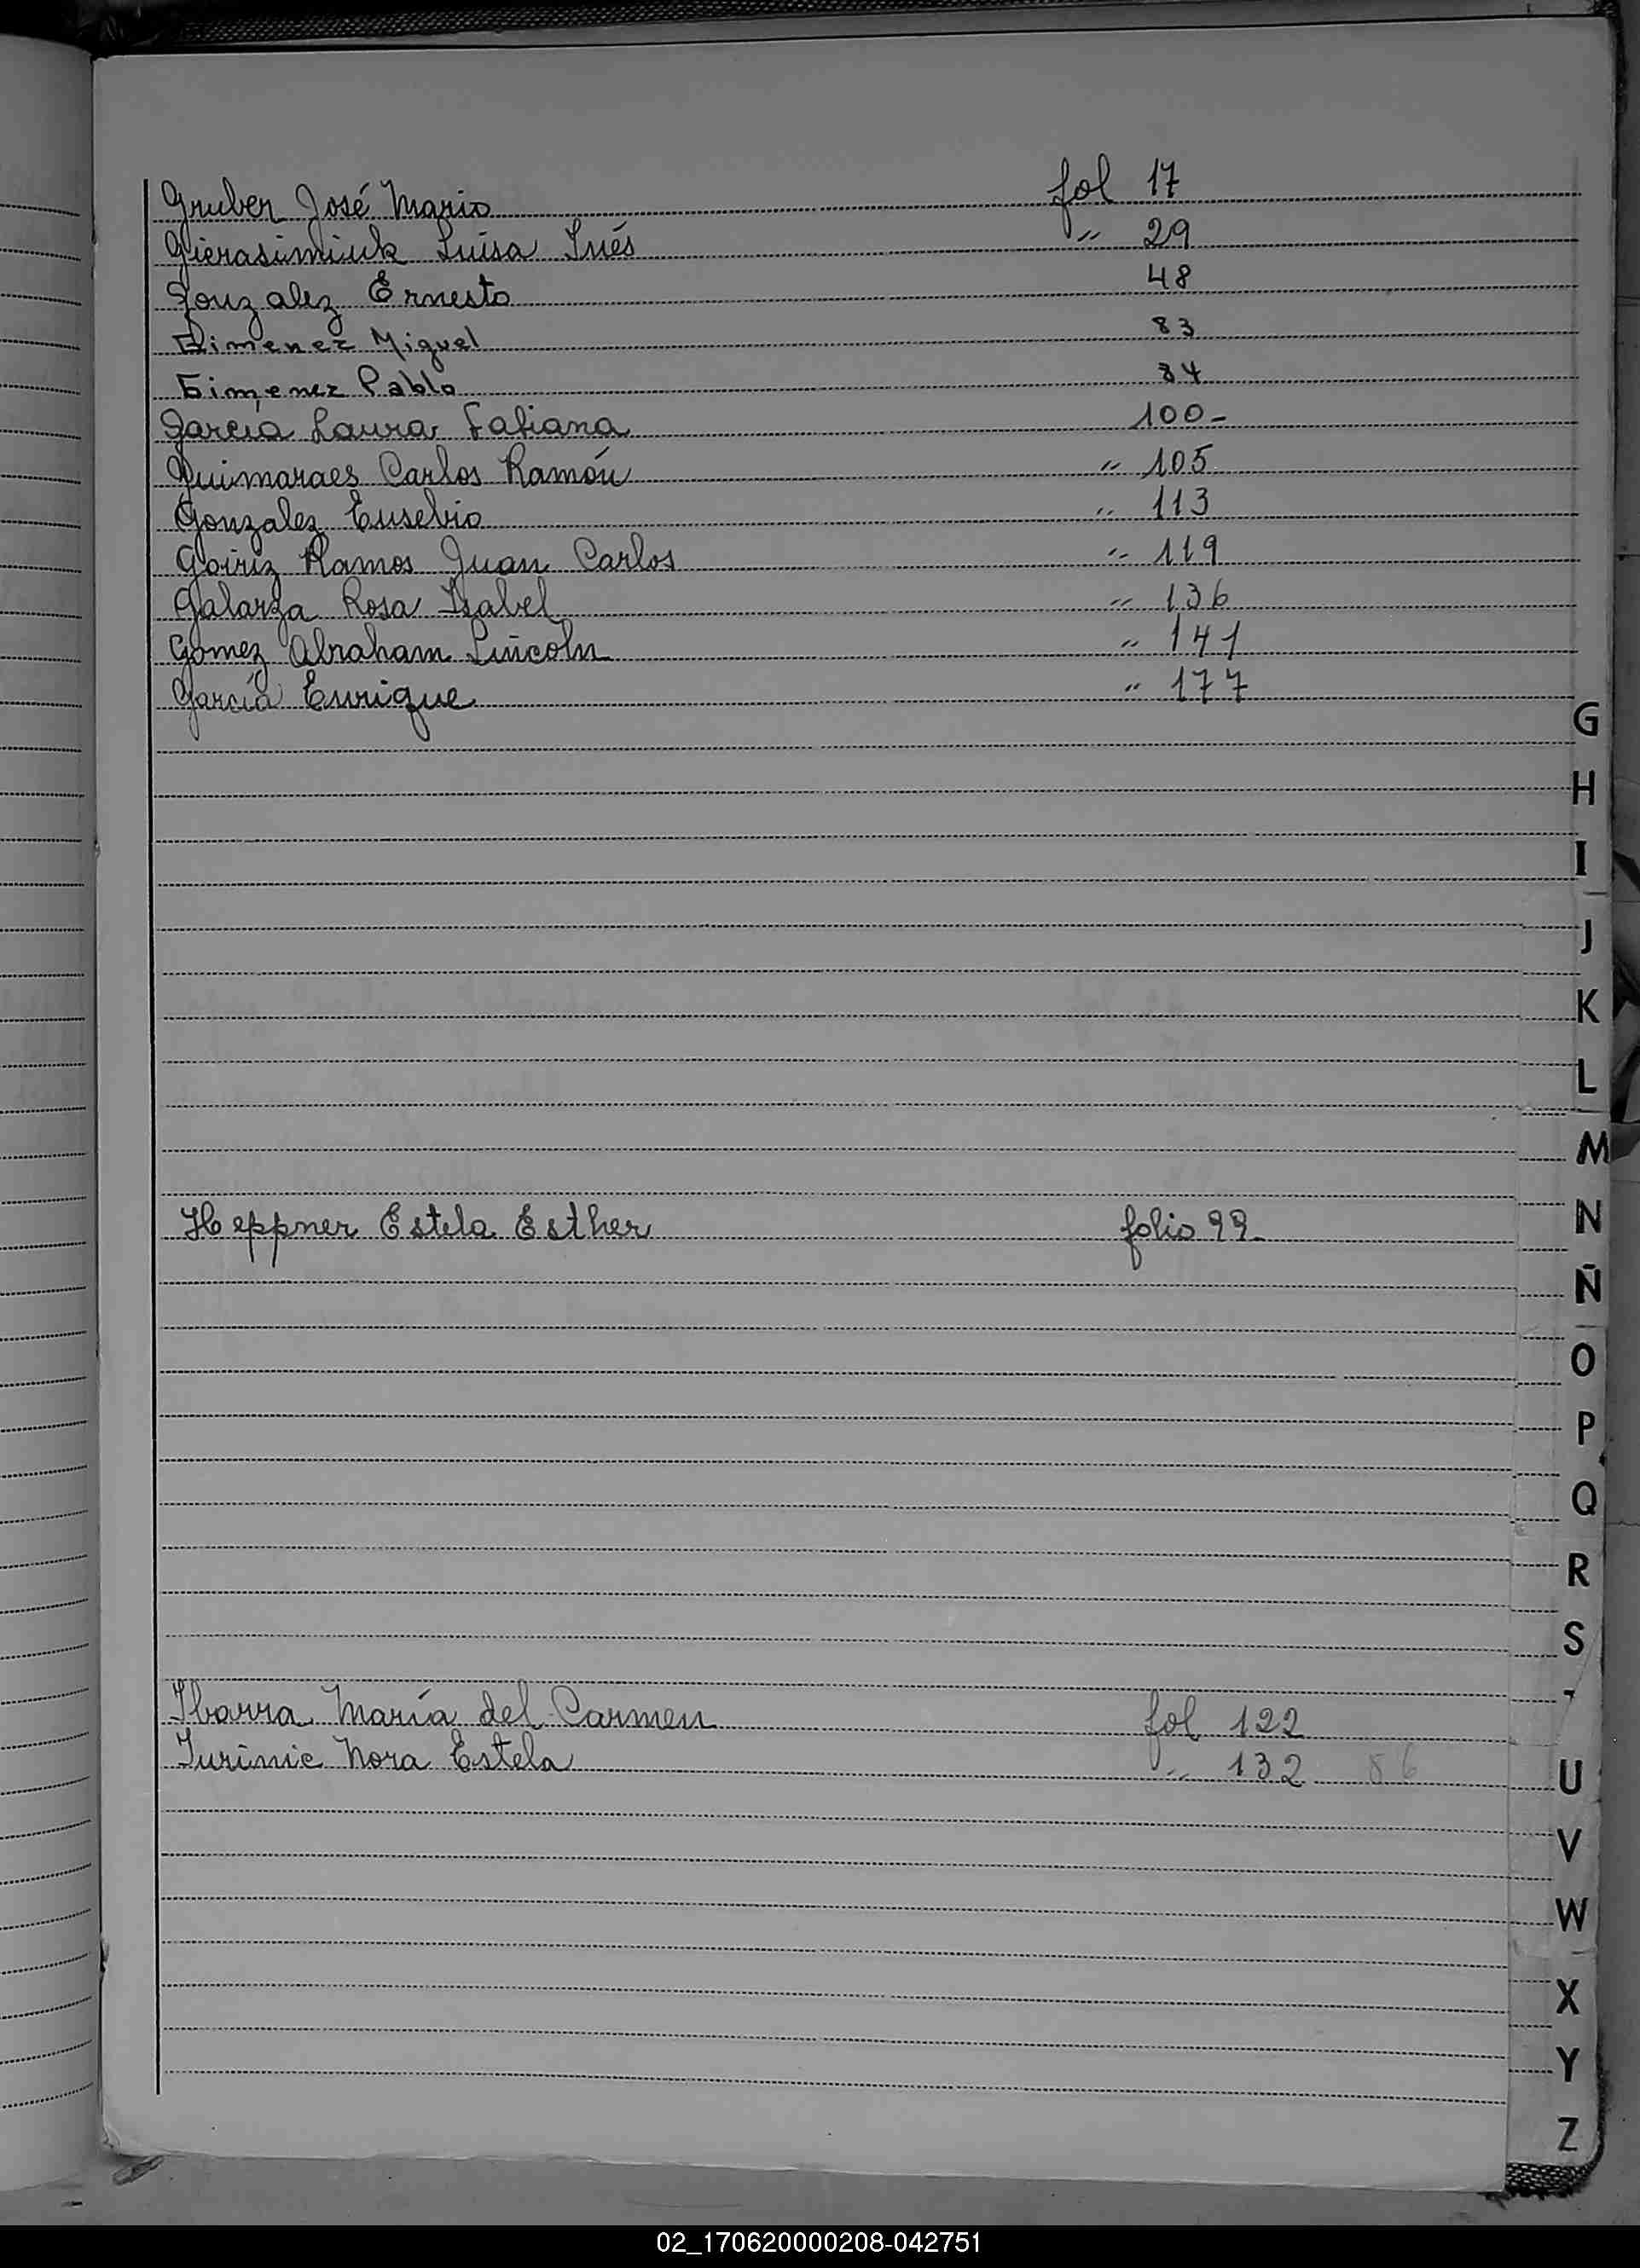 Gruber José Mario fol 17
Gierasimiuk Luisa Inés " 29
Gonzalez Ernesto 48
Gimenez Miguel 83
Gimenez Pablo 84
Garcia Laura Fabiana 100-
Guimaraes Carlos Ramón " 105
Gonzalez Eusebio " 113
Goiriz Ramos Juan Carlos " 119
Galarza Rosa Isabel " 136
Gomez Abraham Lincoln " 141
García Enrique " 177
G
H
I
J
K
L
M
N
Ñ
O
P
Q
R
S
U
V
W
X
Y
Z
Heppner Estela Esther folio 99-
Ibarra María del Carmen fol 122
Iurinic Nora Estela " 132 86
02_170620000208-042751